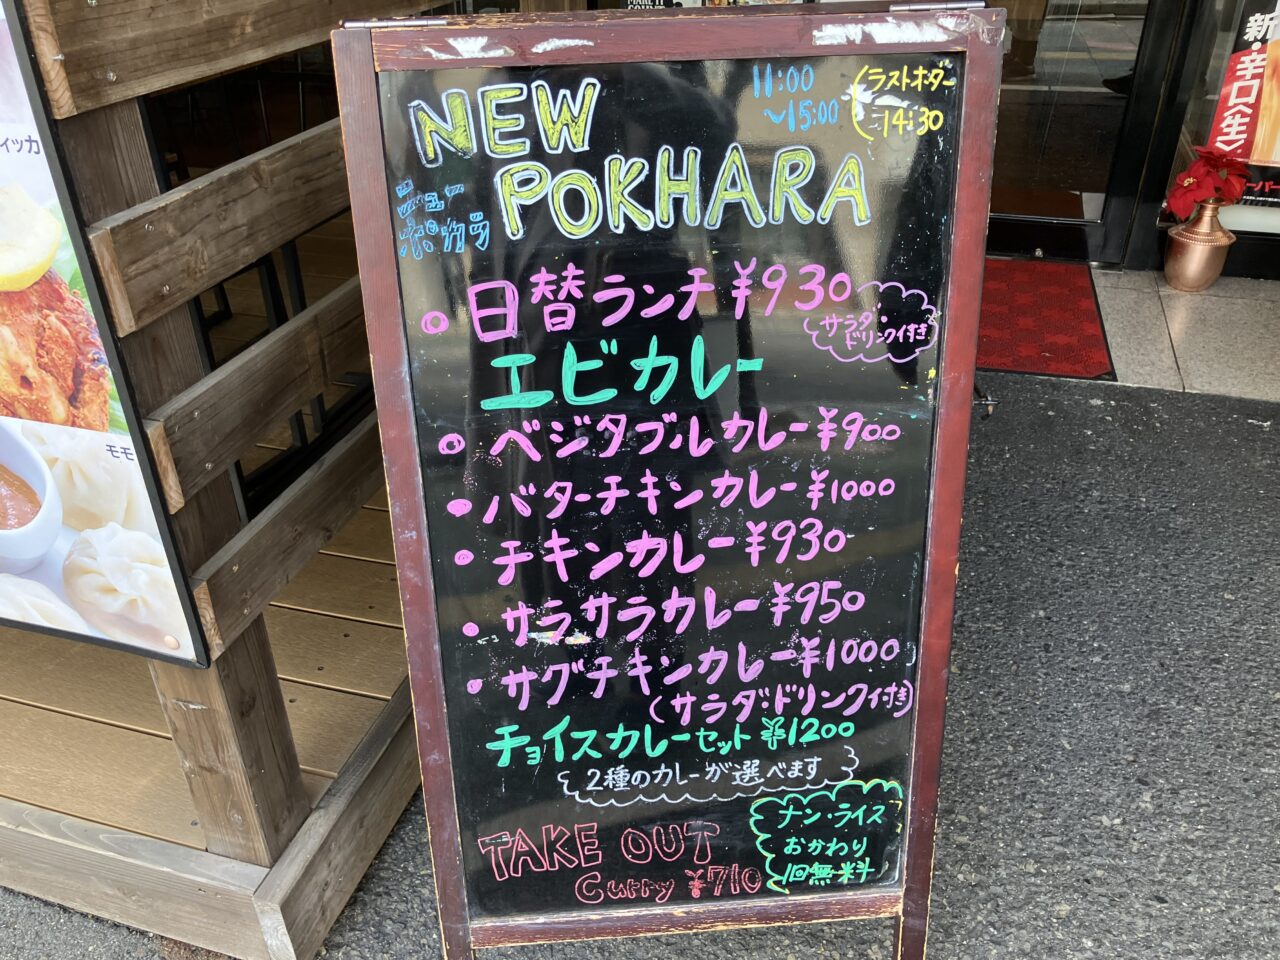 NEW
POKHARA
ニュー
ポカラ
11:00
～15:00
(ラストオーダー
14:30
・日替ランチ ¥930
サラダ・
ドリンク付き
エビカレー
・ベジタブルカレー ¥900
・バターチキンカレー ¥1000
・チキンカレー ¥930
・サラサラカレー ¥950
・サグチキンカレー ¥1000
(サラダ・ドリンク付き)
チョイスカレーセット ¥1200
2種のカレーが選べます
TAKE OUT
Curry ¥710
ナン・ライス
おかわり
1回無料
ィッカ
モモ
新・辛口〈生〉